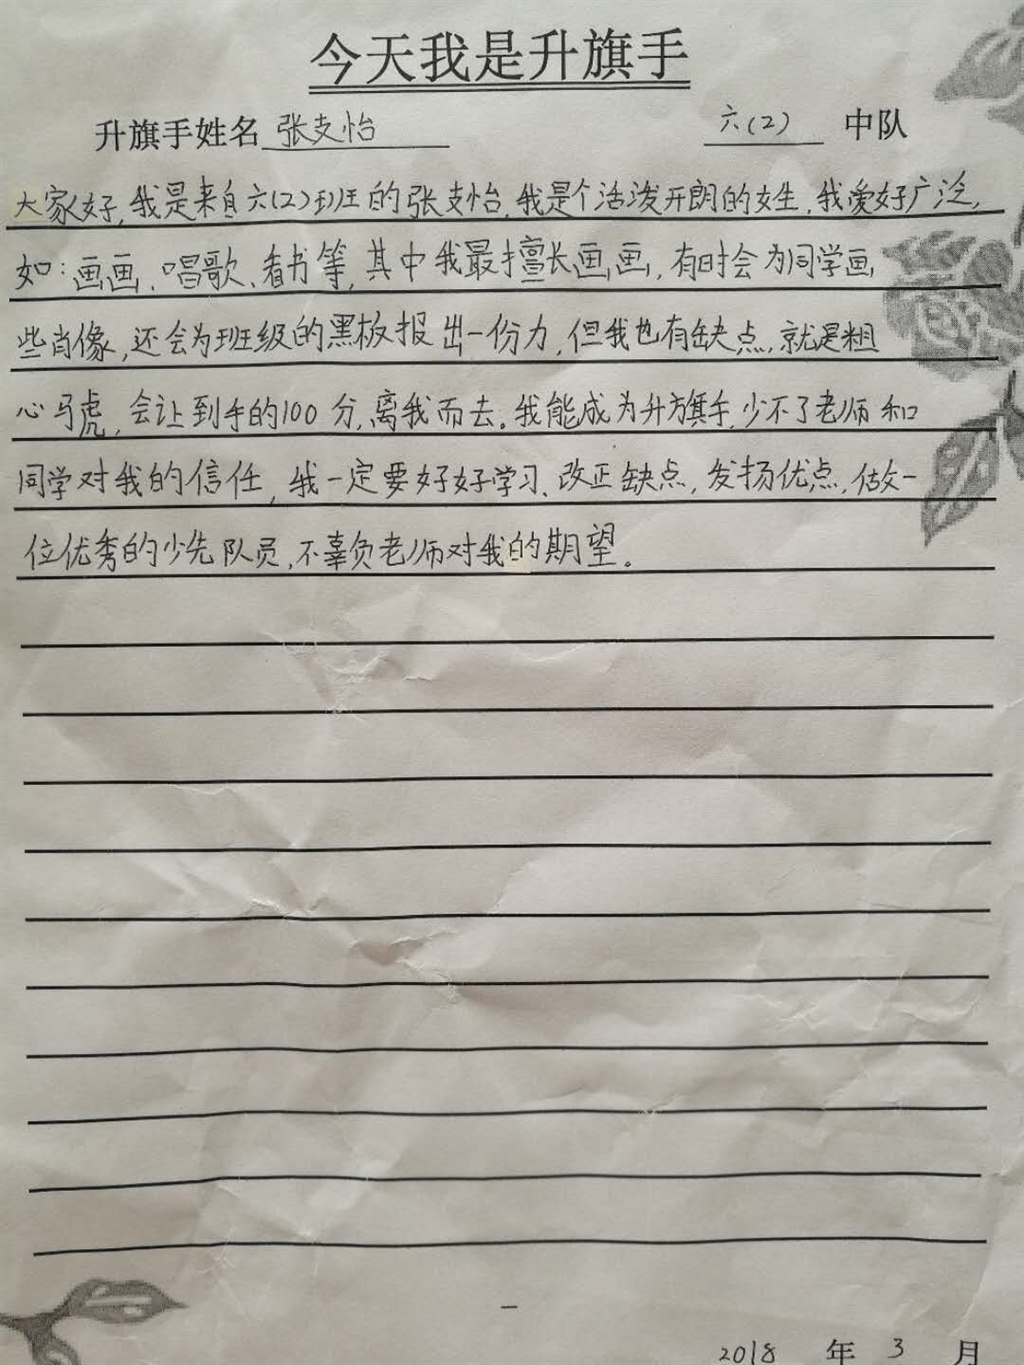 今天我是升旗手
升旗手姓名 张支怡 六(2) 中队
大家好,我是来自六(2)班的张支怡,我是个活泼开朗的女生,我爱好广泛,
如:画画、唱歌、看书等,其中我最擅长画画,有时会为同学画
些肖像,还会为班级的黑板报出一份力,但我也有缺点,就是粗
心马虎,会让到手的100分,离我而去。我能成为升旗手,少不了老师和
同学对我的信任,我一定要好好学习、改正缺点,发扬优点,做一
位优秀的少先队员,不辜负老师对我的期望。
2018 年 3 月